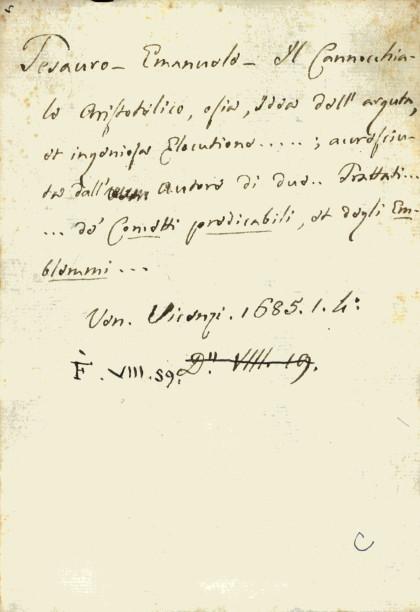 5
Tesauro - Emanuele - Il Cannocchia-
le Aristotelico, osia, Idea dell'arguta,
et ingeniosa Elocutione.....; accresciu-
ta dall' Autore di due.. Trattati...
... de' Concetti predicabili, et degli Em-
blemmi...
Ven. Vicenzi. 1685. 1. 4:
F. VIII. 59. D.. VIII. 19.
C